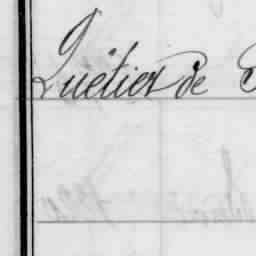 Quétier de